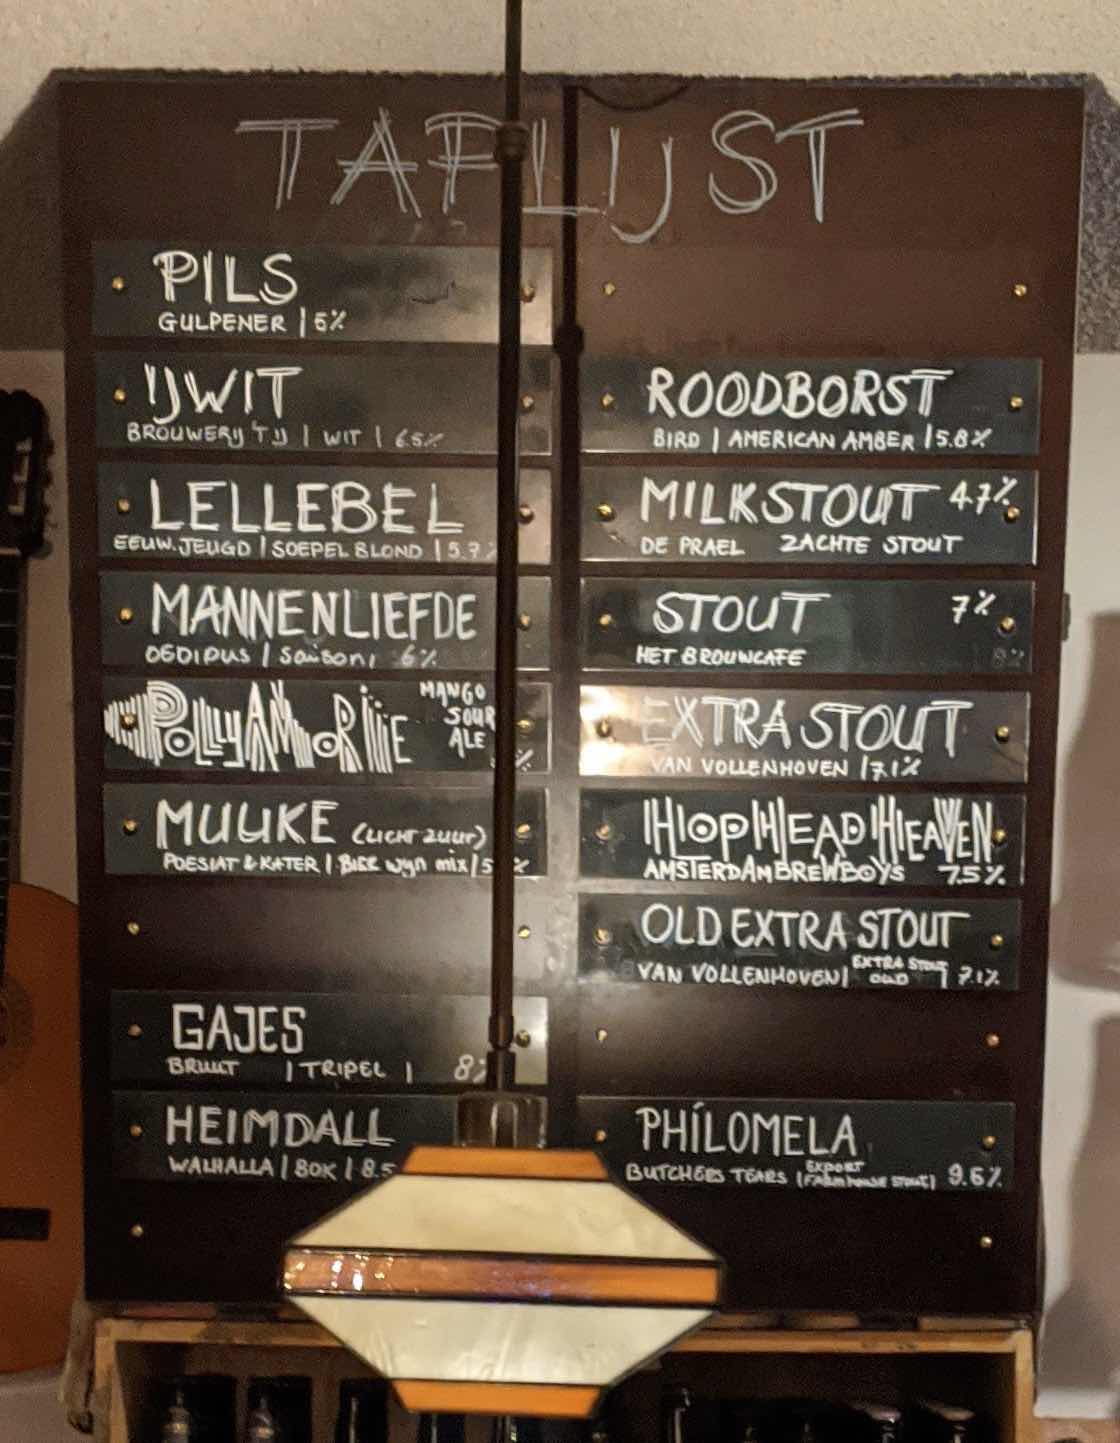 TAPLIJST
PILS
GULPENER | 5%
IJWIT
BROUWERIJ 'T IJ | WIT | 6.5%
LELLEBEL
EEUW. JEUGD | SOEPEL BLOND | 5.7
MANNENLIEFDE
OEDIPUS | Saison | 6%
POLLYAMORIE MANGO
SOUR
ALE
%
MUUKE (LICHT ZUUR)
POESIAT & KATER | BIER wijn mix | 5 %
GAJES
BRUUT | TRIPEL | 8%
HEIMDALL
WALHALLA | BOK | 8.5
ROODBORST
BIRD | AMERICAN AMBER | 5.8%
MILKSTOUT 4.7%
DE PRAEL ZACHTE STOUT
STOUT 7%
HET BROUWCAFE
EXTRA STOUT
VAN VOLLENHOVEN | 7.1%
HOPHEADHEAVEN
AMSTERDAMBREWBOYS 7.5%
OLD EXTRA STOUT
VAN VOLLENHOVEN | EXTRA STOUT OLD | 7.1%
PHÍLOMELA
BUTCHERS TEARS | EXPORT FARMHOUSE STOUT | 9.6%